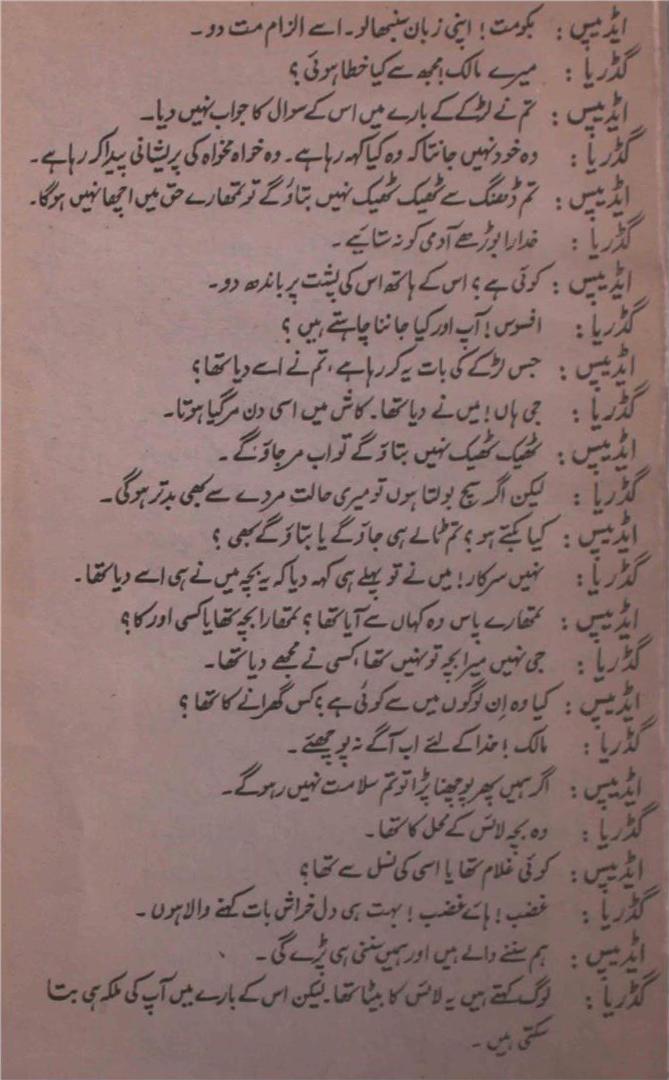 ایڈیپس : بکومت! اپنی زبان سنبھالو۔ اسے الزام مت دو۔
گڈریا : میرے مالک! مجھ سے کیا خطا ہوئی ؟
ایڈیپس : تم نے لڑکے کے بارے میں اس کے سوال کا جواب نہیں دیا۔
گڈریا : وہ خود نہیں جانتا کہ وہ کیا کہہ رہا ہے۔ وہ خواہ مخواہ کی پریشانی پیدا کر رہا ہے۔
ایڈیپس : تم ڈھنگ سے ٹھیک ٹھیک نہیں بتاؤ گے تو تمھارے حق میں اچھا نہیں ہوگا۔
گڈریا : خدارا بوڑھے آدمی کو نہ ستائیے ۔
ایڈیپس : کوئی ہے ؟ اس کے ہاتھ اس کی پشت پر باندھ دو۔
گڈریا : افسوس! آپ اور کیا جاننا چاہتے ہیں ؟
ایڈیپس : جس لڑکے کی بات یہ کر رہا ہے، تم نے اسے دیا تھا ؟
گڈریا : جی ہاں! میں نے دیا تھا۔ کاش میں اسی دن مر گیا ہوتا۔
ایڈیپس : ٹھیک ٹھیک نہیں بتاؤ گے تو اب مر جاؤ گے ۔
گڈریا : لیکن اگر سچ بولتا ہوں تو میری حالت مردے سے بھی بدتر ہوگی۔
ایڈیپس : کیا بکتے ہو ؟ تم ٹالے ہی جاؤ گے یا بتاؤ گے بھی ؟
گڈریا : نہیں سرکار! میں نے تو پہلے ہی کہہ دیا کہ یہ بچہ میں نے ہی اسے دیا تھا۔
ایڈیپس : تمھارے پاس وہ کہاں سے آیا تھا ؟ تمھارا بچہ تھا یا کسی اور کا ؟
گڈریا : جی نہیں میرا بچہ تو نہیں تھا، کسی نے مجھے دیا تھا۔
ایڈیپس : کیا وہ اِن لوگوں میں سے کوئی ہے ؟ کس گھرانے کا تھا ؟
گڈریا : مالک ! خدا کے لئے اب آگے نہ پوچھئے ۔
ایڈیپس : اگر ہمیں پھر پوچھنا پڑا تو تم سلامت نہیں رہو گے۔
گڈریا : وہ بچہ لائس کے محل کا تھا۔
ایڈیپس : کوئی غلام تھا یا اسی کی نسل سے تھا ؟
گڈریا : غضب! ہائے غضب! بہت ہی دل خراش بات کہنے والا ہوں ۔
ایڈیپس : ہم سننے والے ہیں اور ہمیں سننی ہی پڑے گی ۔
گڈریا : لوگ کہتے ہیں یہ لائس کا بیٹا تھا۔ لیکن اس کے بارے میں آپ کی ملکہ ہی بتا
سکتی ہیں ۔